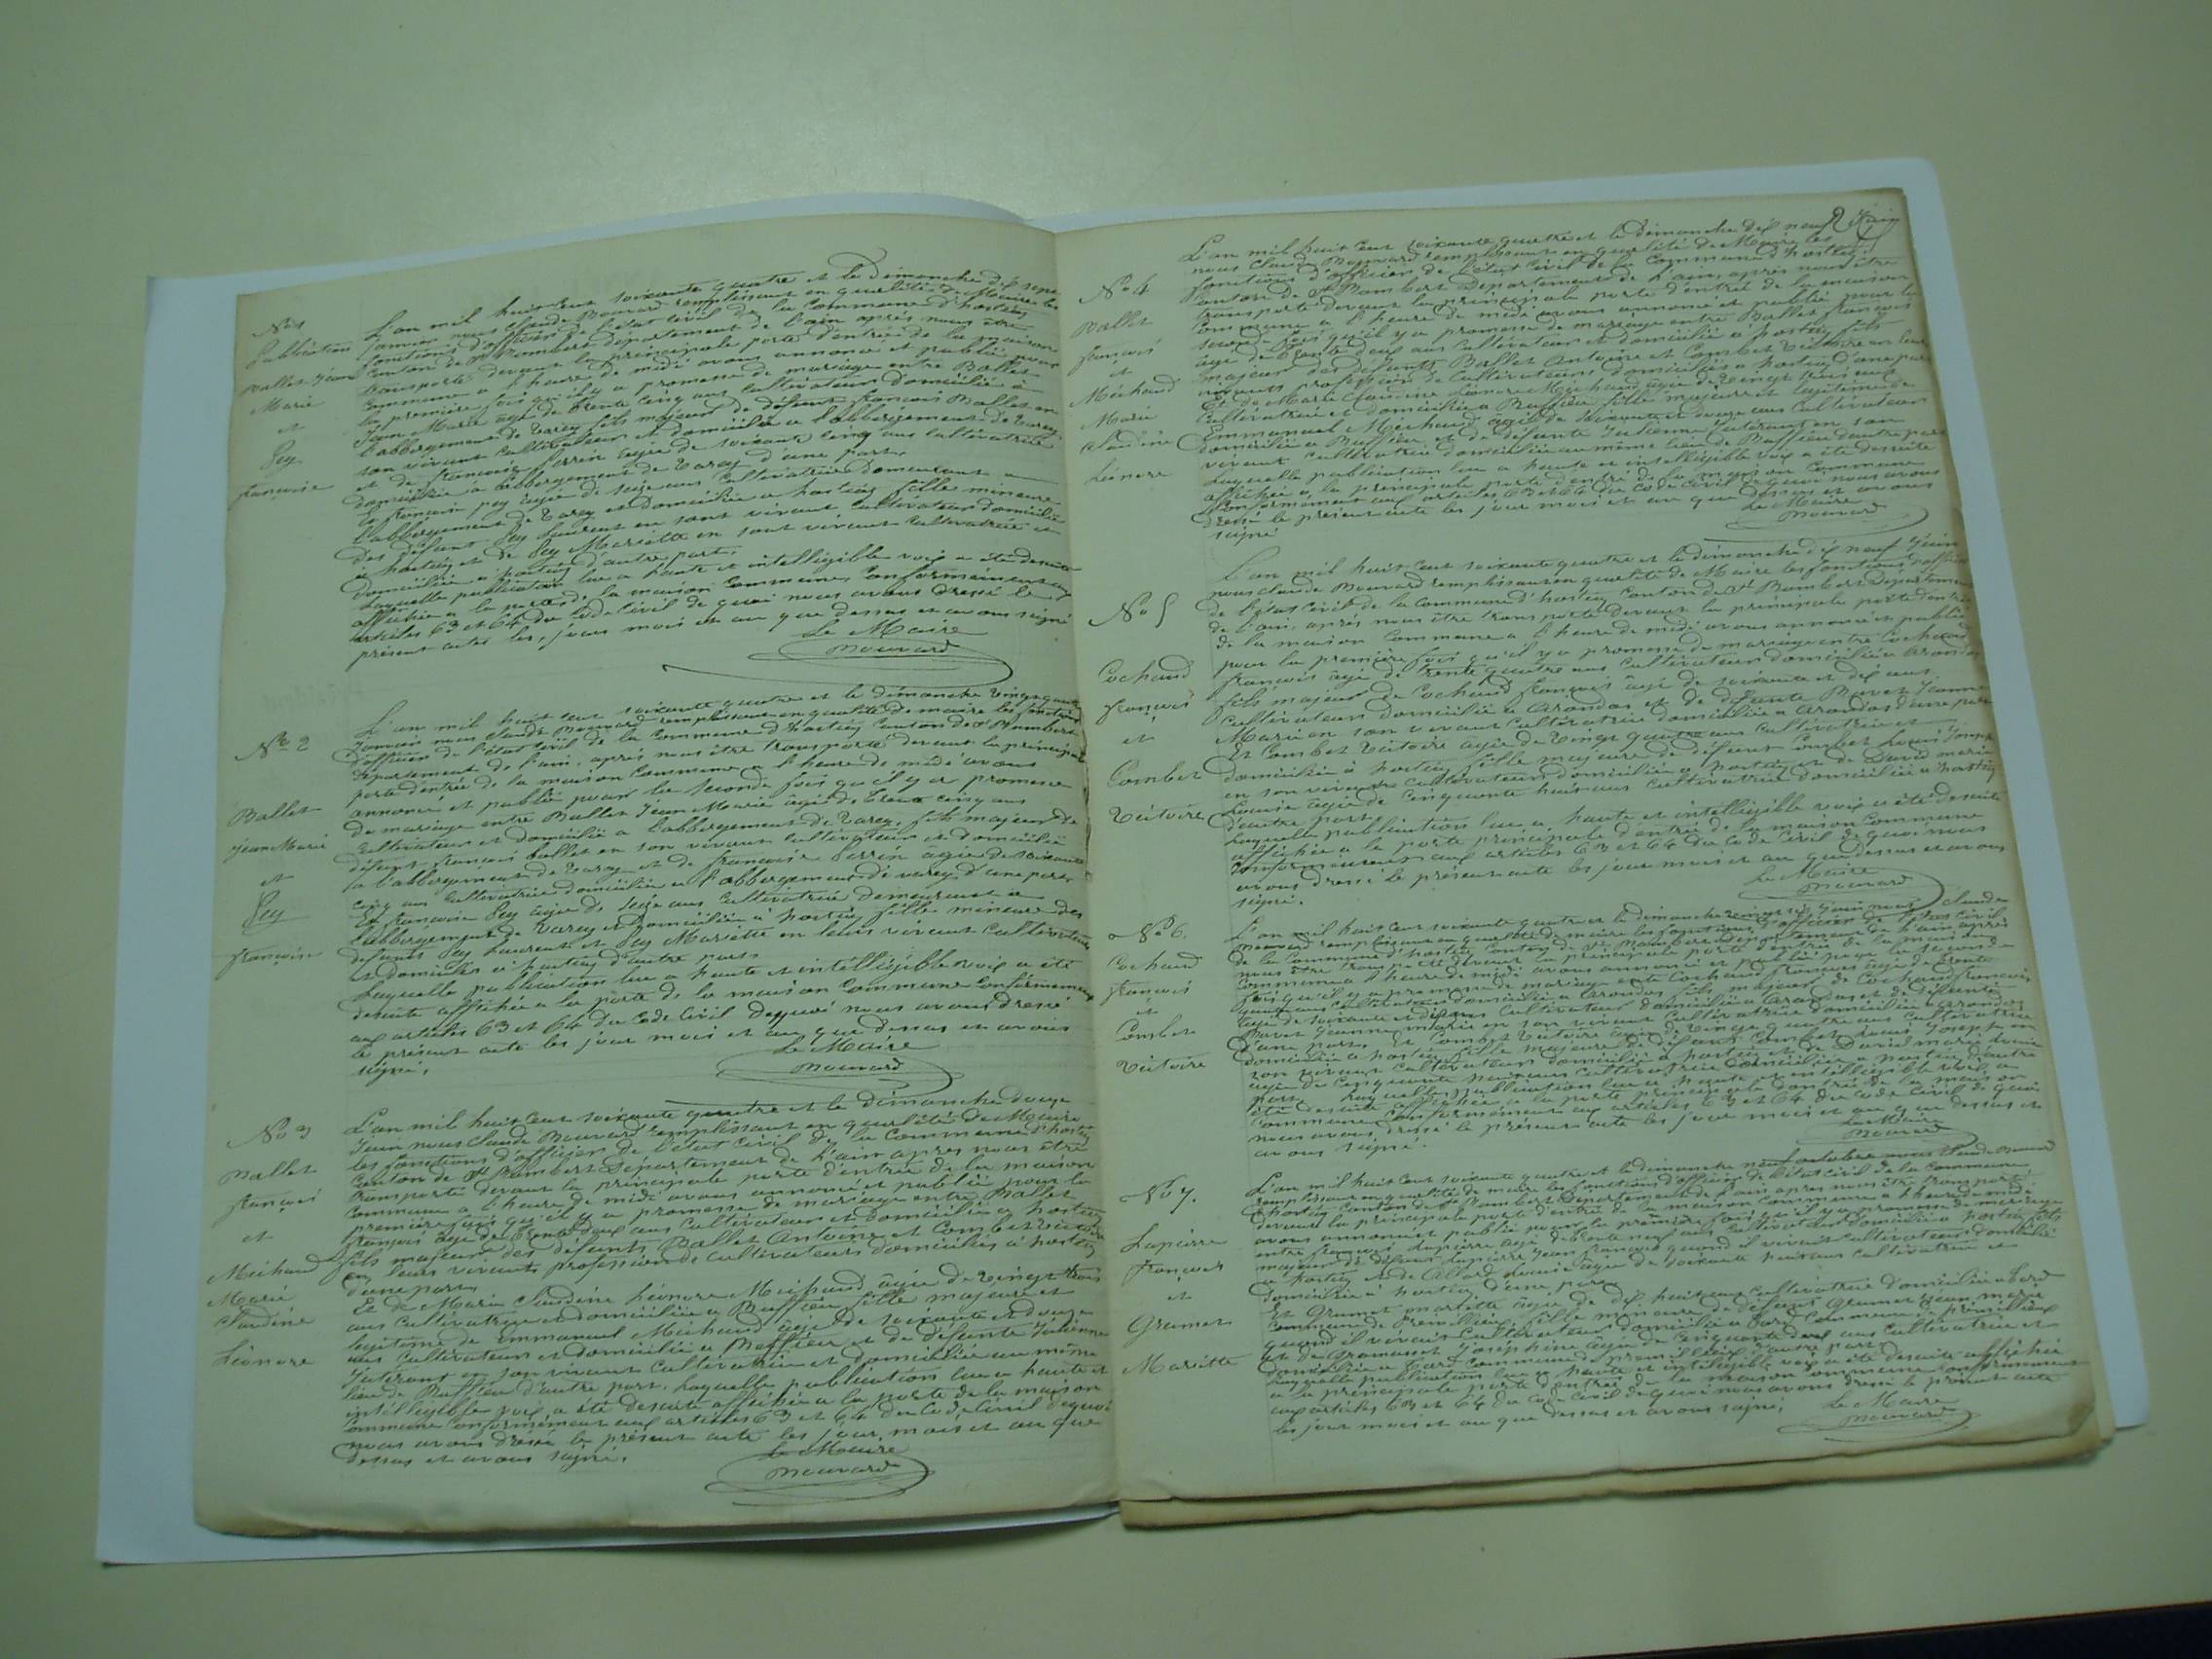 No 1
Publication
Ballet Jean
Marie
et
Pey
françoise
L'an mil huit cent soixante quatre et le Dimanche dix sept
janvier nous Claude Bouvard remplissant en qualité de Maire les
fonctions d'officier de l'état civil de la Commune d'hostiaz
Canton de St Rambert Département de l'ain après nous être
transporté devant la principale porte d'entrée de la maison
Commune a l'heure de midi avons annoncé et publié pour
la première fois qu'il y a promesse de mariage entre Ballet
Jean Marie âgé de trente cinq ans Cultivateur domicilié à
l'abbergement de Varey fils majeur de défunt françois Ballet en
son vivant Cultivateur et domicilié a l'abbergement de Varey
et de françoise Perrin âgée de soixante cinq ans Cultivatrice
domiciliée a l'abbergement de Varey d'une part.
Et françoise pey âgée de seize ans Cultivatrice demeurant a
l'abbergement de Varey et domiciliée a hostiaz fille mineure
des défunt Pey Laurent en sont vivant Cultivateur domicilié
a hostiaz et de Pey Mariette en sont vivant Cultivatrice et
domiciliée a hostiaz d'autre part.
Laquelle publication lue a haute et intelligible voix a été desuite
affichée a la porte de la maison Commune, Conformément aux
articles 63 et 64 du Code Civil de quoi nous avons dressé le
présent acte les, jour mois et an que dessus et avons signé
Le Maire
Bouvard
No 2
Ballet
Jean Marie
et
Pey
françoise
L'an mil huit cent soixante quatre et le dimanche vingt quatre
Janvier nous Claude Bouvard remplissant en qualité de maire les fonctions
d'officier de l'état civil de la Commune d'hostiaz Canton de St Rambert
Département de l'ain, après nous être transporté devant la principale
porte d'entrée de la maison Commune a l'heure de midi avons
annoncé et publié pour la seconde fois qu'il y a promesse
de mariage entre Ballet Jean Marie âgé de trente cinq ans
Cultivateur et domicilié a l'abbergement de Varey, fils majeur de
défunt françois ballet en son vivant Cultivateur et domicilié
a l'abbergement de Varey et de françoise Perrin âgée de soixante
cinq ans Cultivatrice domiciliée a l'abbergement de varey d'une part,
Et françoise Pey âgée de seize ans Cultivatrice demeurant a
l'abbergement de Varey et domiciliée a hostiaz fille mineure des
défunts Pey Laurent et Pey Mariette en leurs vivant Cultivateurs
et domiciliés a hostiaz d'autre part.
Laquelle publication lue a haute et intelligible voix a été
desuite affichée a la porte de la maison Commune Conformément
aux articles 63 et 64 du Code Civil dequoi nous avons dressé
le présent acte les jour mois et an que dessus et avons
signé.
Le Maire
Bouvard
No 3
Ballet
françois
et
Michaud
Marie
Claudine
Léonore
L'an mil huit cent soixante quatre et le dimanche douze
Juin nous Claude Bouvard remplissant en qualité de Maire
les fonctions d'officier de l'état civil de la Commune d'hostiaz
Canton de St Rambert Département de l'ain après nous être
transporté devant la principale porte d'entrée de la maison
Commune a l'heure de midi avons annoncé et publié pour la
première fois qu'il y a promesse de mariage entre Ballet
françois âgé de trente deux ans Cultivateur et domicilié a hostiaz
fils majeur des défunts Ballet Antoine et Combet Victoire
en leurs vivants profession de Cultivateurs domiciliés a hostiaz
d'une part,
Et de Marie Claudine Léonore Michaud âgée de vingt trois
ans Cultivatrice et domiciliée a Ruffieu fille majeure et
légitime de Emmanuel Michaud âgé de soixante et douze
ans Cultivateur et domicilié a Ruffieu et de défunte Julienne
en son vivant Cultivatrice et domiciliée au même
lieu de Ruffieu d'autre part. Laquelle publication lue a haute et
intelligible voix a été desuite affichée a la porte de la maison
Commune Conformément aux articles 63 et 64 du Code Civil dequoi
nous avons dressé le présent acte les jour, mois et an que
dessus et avons signé.
Le Maire
Bouvard
2
No 4
Ballet
françois
et
Michaud
Marie
Claudine
Léonore
L'an mil huit cent soixante quatre et le dimanche dix neuf Juin
nous Claude Bouvard remplissant en qualité de Maire les
fonctions d'officier de l'état civil de la Commune d'hostiaz
Canton de St Rambert Département de l'ain, après nous être
transporté devant la principale porte d'entrée de la maison
Commune a l'heure de midi avons annoncé et publié pour la
seconde fois qu'il y a promesse de mariage entre Ballet françois
âgé de trente deux ans Cultivateur et domicilié a hostiaz fils
majeur des défunts Ballet Antoine et Combet Victoire en leur
vivants profession de Cultivateurs domiciliés a hostiaz d'une part
Et de Marie Claudine Léonore Michaud âgée de vingt trois ans
Cultivatrice et domiciliée a Ruffieu fille majeure et légitime de
Emmanuel Michaud âgé de soixante et douze ans Cultivateur
domicilié a Ruffieu et de défunte Julienne en son
vivant Cultivatrice domiciliée au même lieu de Ruffieu d'autre part
Laquelle publication lue a haute et intelligible voix a été desuite
affichée a la principale porte d'entrée de la maison Commune
Conformément aux articles 63 et 64 du Code Civil de quoi nous avons
dressé le présent acte les jour mois et an que dessus et avons
signé
Le Maire
Bouvard
No 5
Cochand
françois
et
Combet
Victoire
L'an mil huit cent soixante quatre et le dimanche dix neuf Juin
nous Claude Bouvard remplissant en qualité de Maire les fonctions d'officier
de l'état civil de la Commune d'hostiaz Canton de St Rambert Département
de l'ain, après nous être transporté devant la principale porte d'entrée
de la maison Commune a l'heure de midi avons annoncé et publié
pour la première fois qu'il y a promesse de mariage entre Cochand
françois âgé de trente quatre ans Cultivateur domicilié a Arandas
fils majeur de Cochand françois âgé de soixante et dix ans
Cultivateur domicilié a Arandas et de défunte Jeanne
Marie en son vivant Cultivatrice domiciliée a Arandas d'une part
Et Combet Victoire âgée de vingt quatre ans Cultivatrice et
domiciliée a hostiaz fille majeure de défunt Combet Louis Joseph
en son vivant Cultivateur domicilié a hostiaz et de David marie
Louise âgée de cinquante huit ans Cultivatrice domiciliée a hostiaz
d'autre part.
Laquelle publication lue a haute et intelligible voix a été desuite
affichée a la porte principale d'entrée de la maison Commune
Conformément aux articles 63 et 64 du Code Civil de quoi nous
avons dressé le présent acte les jour mois et an que dessus et avons
signé.
Le Maire
Bouvard
No 6.
Cochand
françois
et
Combet
Victoire
L'an mil huit cent soixante quatre et le dimanche vingt six Juin nous Claude
Bouvard remplissant en qualité de maire les fonctions d'officier de l'état civil
de la Commune d'hostiaz Canton de St Rambert Département de l'ain après
nous être transporté devant la principale porte d'entrée de la maison
Commune a l'heure de midi avons annoncé et publié pour la seconde
fois qu'il y a promesse de mariage entre Cochand françois âgé de trente
quatre ans Cultivateur domicilié a Arandas fils majeur de Cochand françois
âgé de soixante et dix ans Cultivateur domicilié a Arandas et de défunte
Jeanne marie en son vivant Cultivatrice domiciliée a Arandas
d'une part. Et Combet Victoire âgée de vingt quatre ans Cultivatrice
domiciliée a hostiaz fille majeure de défunt Combet Louis Joseph en
son vivant Cultivateur domicilié a hostiaz et de David marie Louise
âgée de cinquante huit ans Cultivatrice domiciliée a hostiaz d'autre
part. Laquelle publication lue a haute et intelligible voix a
été desuite affichée a la porte principale d'entrée de la maison
Commune Conformément aux articles 63 et 64 du Code Civil de quoi
nous avons dressé le présent acte les jour mois et an que dessus et
avons signé.
Le Maire
Bouvard
No 7.
Lapierre
françois
et
Gramet
Mariette
L'an mil huit cent soixante quatre et le dimanche neuf octobre nous Claude Bouvard
remplissant en qualité de maire les fonctions d'officier de l'état civil de la Commune
d'hostiaz Canton de St Rambert Département de l'ain après nous être transporté
devant la principale porte d'entrée de la maison Commune a l'heure de midi
avons annoncé et publié pour la première fois qu'il y a promesse de mariage
entre françois Lapierre âgé de trente neuf ans Cultivateur domicilié a hostiaz fils
majeur de défunt Lapierre Jean françois quand il vivait Cultivateur domicilié
a hostiaz et de Allard Louise âgée de soixante huit ans Cultivatrice et
domiciliée a hostiaz d'une part
Et Gramet mariette âgée de dix huit ans Cultivatrice domiciliée a
Commune de Premillieu, fille mineure de défunt Gramet Jean marie
quand il vivait Cultivateur domicilié a Commune de Premillieux
et de Joséphine âgée de cinquante deux ans Cultivatrice et
domiciliée a Commune de Premillieu d'autre part.
Laquelle publication lue a haute et intelligible voix a été desuite affichée
a la principale porte d'entrée de la maison Commune Conformément
aux articles 63 et 64 du Code Civil de quoi nous avons dressé le présent acte
les jour mois et an que dessus et avons signé.
Le Maire
Bouvard